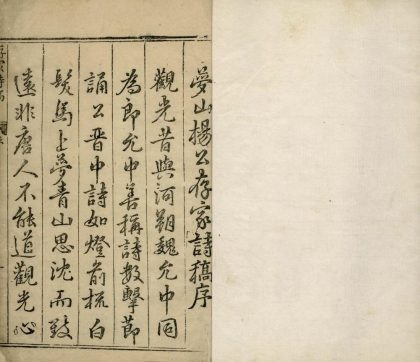 夢山楊公存家詩稿序
觀光昔與河朔魏允中同
為郎允中善稱詩數擊節
誦公晋中詩如燈前梳白
髮馬上夢青山思沈而致
遠非唐人不能道觀光心